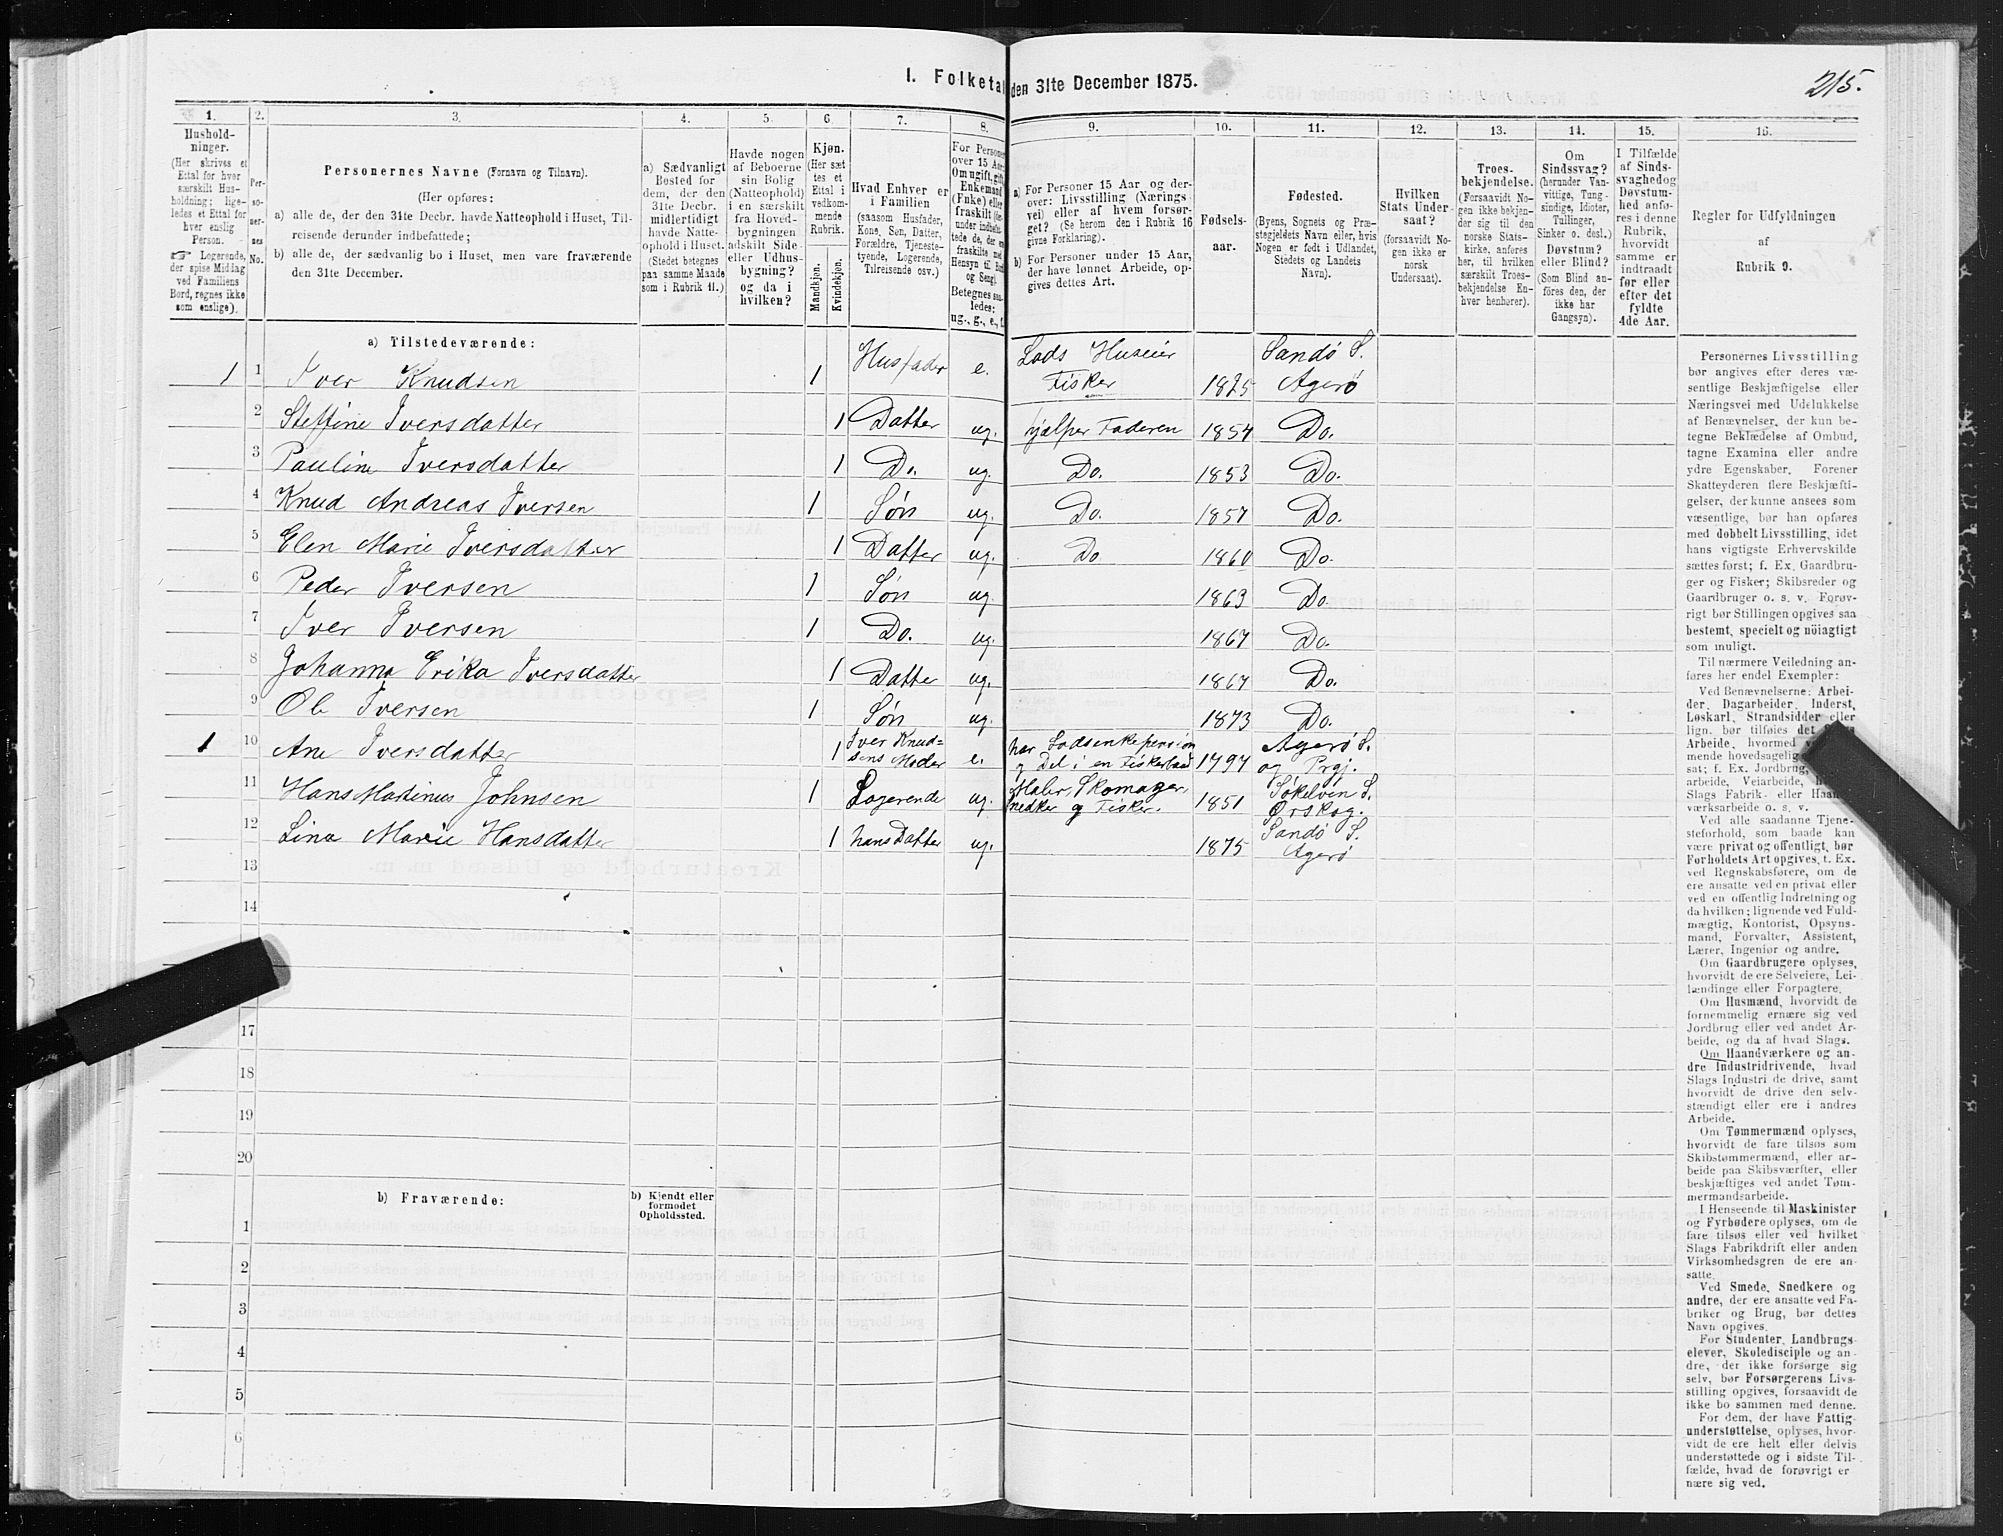 I. Folketal den 31te December 1875.
215.
1.
2.
3.
4.
5.
6.
7.
8.
9.
10.
11.
12.
13.
14.
15.
16.
Hushold-
ninger.
(Her skrives et
Ettal for hver
særskilt Hus-
holdning; lige-
ledes et Ettal for
hver enslig
Person.
☞ Logerende,
der spise Middag
ved Familiens
Bord, regnes ikke
som enslige).
Per-
so-
ner-
nes
No.
Personernes Navne (Fornavn og Tilnavn).
(Her opføres:
a) alle de, der den 31te Decbr. havde Natteophold i Huset, Til-
reisende derunder indbefattede;
b) alle de, der sædvanlig bo i Huset, men vare fraværende
den 31te December.
a) Sædvanligt
Bosted for
dem, der den
31te Decbr.
midlertidigt
havde Natte-
ophold i Huset.
(Stedet betegnes
paa samme Maade
som i Rubrik 11.)
Havde nogen
af Beboerne
sin Bolig
(Natteophold)
i en særskilt
fra Hoved-
bygningen
adskilt Side-
eller Udhus-
bygning?
og da i
hvilken?
Kjøn.
(Her sæt-
tes et
Ettal i
vedkom-
mende
Rubrik.
Mandkjøn.
Kvindekjøn.
Hvad Enhver er
i Familien
(saasom Husfader,
Kone, Søn, Datter,
Forældre, Tjeneste-
tyende, Logerende,
Tilreisende osv.)
For Personer
over 15 Aar:
Om ugift, gift,
Enkemand
(Enke) eller
fraskilt
Betegnes saa-
ledes:
ug., g., e., f.
a) For Personer 15 Aar og der-
over: Livsstilling (Nærings-
vei) eller af hvem forsør-
get? (Se herom den i Rubrik 16
givne Forklaring).
b) For Personer under 15 Aar,
der have lønnet Arbeide, op-
gives dettes Art.
Fødsels-
aar.
Fødested.
(Byens, Sognets og Præ-
stegjeldets Navn eller, hvis
Nogen er født i Udlandet,
Stedets og Landets
Navn).
Hvilken
Stats Under-
saat?
(forsaavidt No-
gen ikke er
norsk
Undersaat).
Troes-
bekjendelse.
(Forsaavidt No-
gen ikke bekjen-
der sig til den
norske Stats-
kirke, anføres
her, til hvilken
særskilt Troes-
bekjendelse En-
hver henhører).
Om
Sindssvag?
(herunder Van-
vittige, Tung-
sindige, Idioter,
Tullinger,
Sinker o. desl.)
Døvstum?
eller Blind?
(Som Blind an-
føres den, der
ikke har
Gangsyn).
I Tilfælde
af Sinds-
svaghed og
Døvstum-
hed anfø-
res i denne
Rubrik,
hvorvidt
samme er
indtraadt
før eller
efter det
fyldte
4de Aar.
Regler for Udfyldningen
af
Rubrik 9.
a) Tilstedeværende:
1 1 Iver Knudsen 1 Husfader e. Lods Huseier Fisker 1825 Sandø S. Agerø
2 Steffine Iversdatter 1 Datter ug. hjælper Faderen 1854 Do.
3 Pauline Iversdatter 1 Do. ug. Do. 1853 Do.
4 Knud Andreas Iversen 1 Søn ug. Do. 1857 Do.
5 Elen Marie Iversdatter 1 Datter ug. Do 1860 Do.
6 Peder Iversen 1 Søn ug. 1863 Do.
7 Iver Iversen 1 Do. ug. 1867 Do.
8 Johanna Erika Iversdatter 1 Datter ug. 1867 Do.
9 Ole Iversen 1 Søn ug. 1873 Do.
1 10 Ane Iversdatter 1 Iver Knud=sens Moder e. har Lodsenkepension og Del i en Fiskerbaad 1797 Agerø S. og Prgj.
11 Hans Martinus Johnsen 1 Logerende ug. Maler, Skomager, Snedker og Fisker. 1851 Søkelven S. Ørskog.
12 Lina Marie Hansdatter 1 hans Datter ug. 1875 Sandø S. Agerø
13
14
17
18
19
20
b) Fraværende:
b) Kjendt eller
formodet
Opholdssted.
1
2
3
4
5
6
Personernes Livsstilling
bør angives efter deres væ-
sentlige Beskjæftigelse eller
Næringsvei med Udelukkelse
af Benævnelser, der kun be-
tegne Beklædelse af Ombud,
tagne Examina eller andre
ydre Egenskaber. Forener
Skatteyderen flere Beskjæfti-
gelser, der kunne ansees som
væsentlige, bør han opføres
med dobbelt Livsstilling, idet
hans vigtigste Erhvervskilde
sættes først; f. Ex. Gaardbru-
ger og Fisker; Skibsreder og
Gaardbruger o. s. v. Forøv-
rigt bør Stillingen opgives saa
bestemt, specielt og nöiagtigt
som muligt.
Til nærmere Veiledning an-
føres her endel Exempler:
Ved Benævnelserne: Arbei-
der, Dagarbeider, Inderst,
Løskarl, Strandsidder eller
lign. bør tilføies det
Arbeide, hvormed
mende hovedsagelig
sat; f. Ex. Jordbrug,
arbeide, Veiarbeide,
Slags Fabrik- eller Haand-
værksarbeide o. s. v.
Ved alle saadanne Tjene-
steforhold, som baade kan
være privat og offentligt, bør
Forholdets Art opgives, t. Ex.
ved Regnskabsførere, om de
ere ansatte ved en privat eller
ved en offentlig Indretning og
da hvilken; lignende ved Fuld-
mægtig, Kontorist, Opsyns-
mand, Forvalter, Assistent,
Lærer, Ingeniør og andre.
Om Gaardbrugere oplyses,
hvorvidt de ere Selveiere, Lei-
lændinge eller Forpagtere.
Om Husmænd, hvorvidt de
fornemmelig ernære sig ved
Jordbrug eller ved andet Ar-
beide, og da af hvad Slags.
Om Haandværkere og an-
dre Industridrivende, hvad
Slags Industri de drive, samt
hvorvidt de drive den selv-
stændigt eller ere i andres
Arbeide.
Om Tømmermænd oplyses,
hvorvidt de fare tilsøs som
Skibstømmermænd, eller ar-
beide paa Skibsværfter, eller
beskjæftiges ved andet Tøm-
mermandsarbeide.
I Henseende til Maskinister
og Fyrbødere oplyses, om de
fare tilsøs eller ved hvilket
Slags Fabrikdrift eller anden
Virksomhedsgren de ere an-
satte.
Ved Smede, Snedkere og
andre, der ere ansatte ved Fa-
briker og Brug, bør dettes
Navn opgives.
For Studenter, Landbrugs-
elever, Skoledisciple og an-
dre, der ikke forsørge sig
selv, bør Forsørgerens Livs-
stilling opgives, forsaavidt de
ikke bo sammen med denne.
For dem, der have Fattig-
understøttelse, oplyses, hvor-
vidt de ere helt eller delvis
understøttede og i sidste Til-
fælde, hvad de forøvrigt er
nære sig ved.